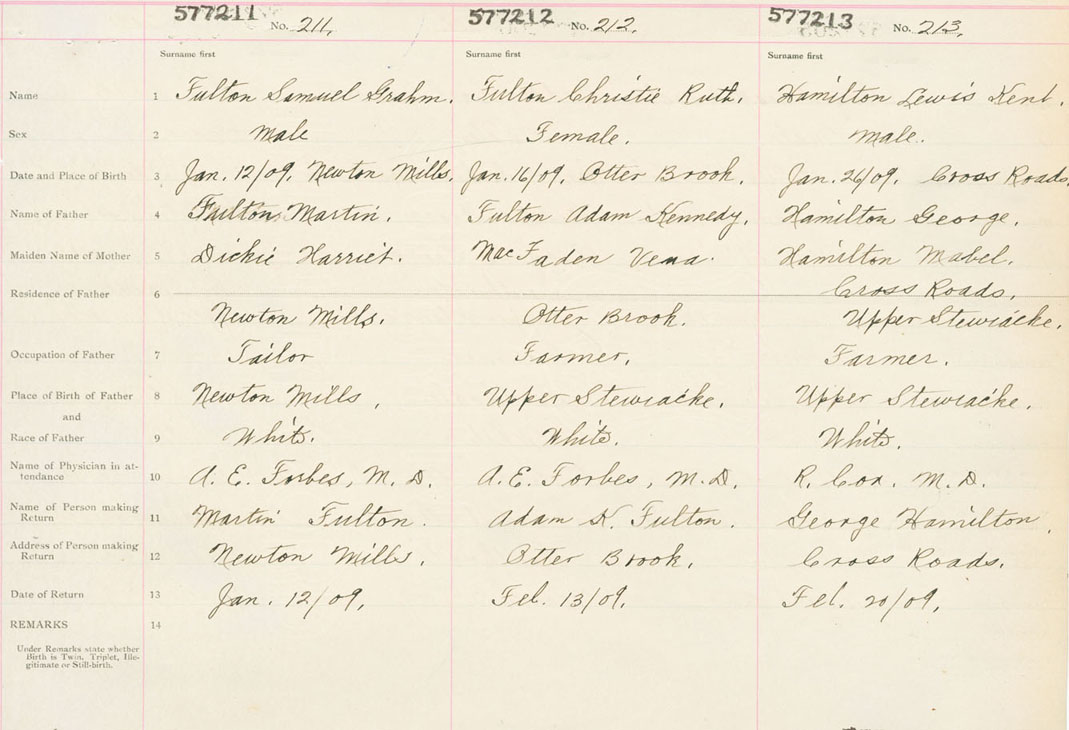 577211 No. 211. 577212 No. 212. 577213 No. 213.
Surname first Surname first Surname first
Name 1 Fulton Samuel Grahm. Fulton Christie Ruth. Hamilton Lewis Kent.
Sex 2 Male Female. Male.
Date and Place of Birth 3 Jan. 12/09. Newton Mills. Jan. 16/09. Otter Brook. Jan. 26/09. Cross Roads.
Name of Father 4 Fulton Martin. Fulton Adam Kennedy. Hamilton George.
Maiden Name of Mother 5 Dickie Harriet. MacFaden Vena. Hamilton Mabel.
Residence of Father 6 Cross Roads.
Newton Mills. Otter Brook. Upper Stewiacke.
Occupation of Father 7 Tailor Farmer. Farmer.
Place of Birth of Father 8 Newton Mills, Upper Stewiacke. Upper Stewiacke.
and
Race of Father 9 White. White. White.
Name of Physician in at-
tendance 10 A. E. Forbes, M. D. A. E. Forbes, M. D. R. Cox. M. D.
Name of Person making
Return 11 Martin Fulton. Adam K. Fulton. George Hamilton.
Address of Person making
Return 12 Newton Mills. Otter Brook. Cross Roads.
Date of Return 13 Jan. 12/09. Feb. 13/09. Feb. 20/09.
REMARKS 14
Under Remarks state whether
Birth is Twin, Triplet, Ille-
gitimate or Still-birth.